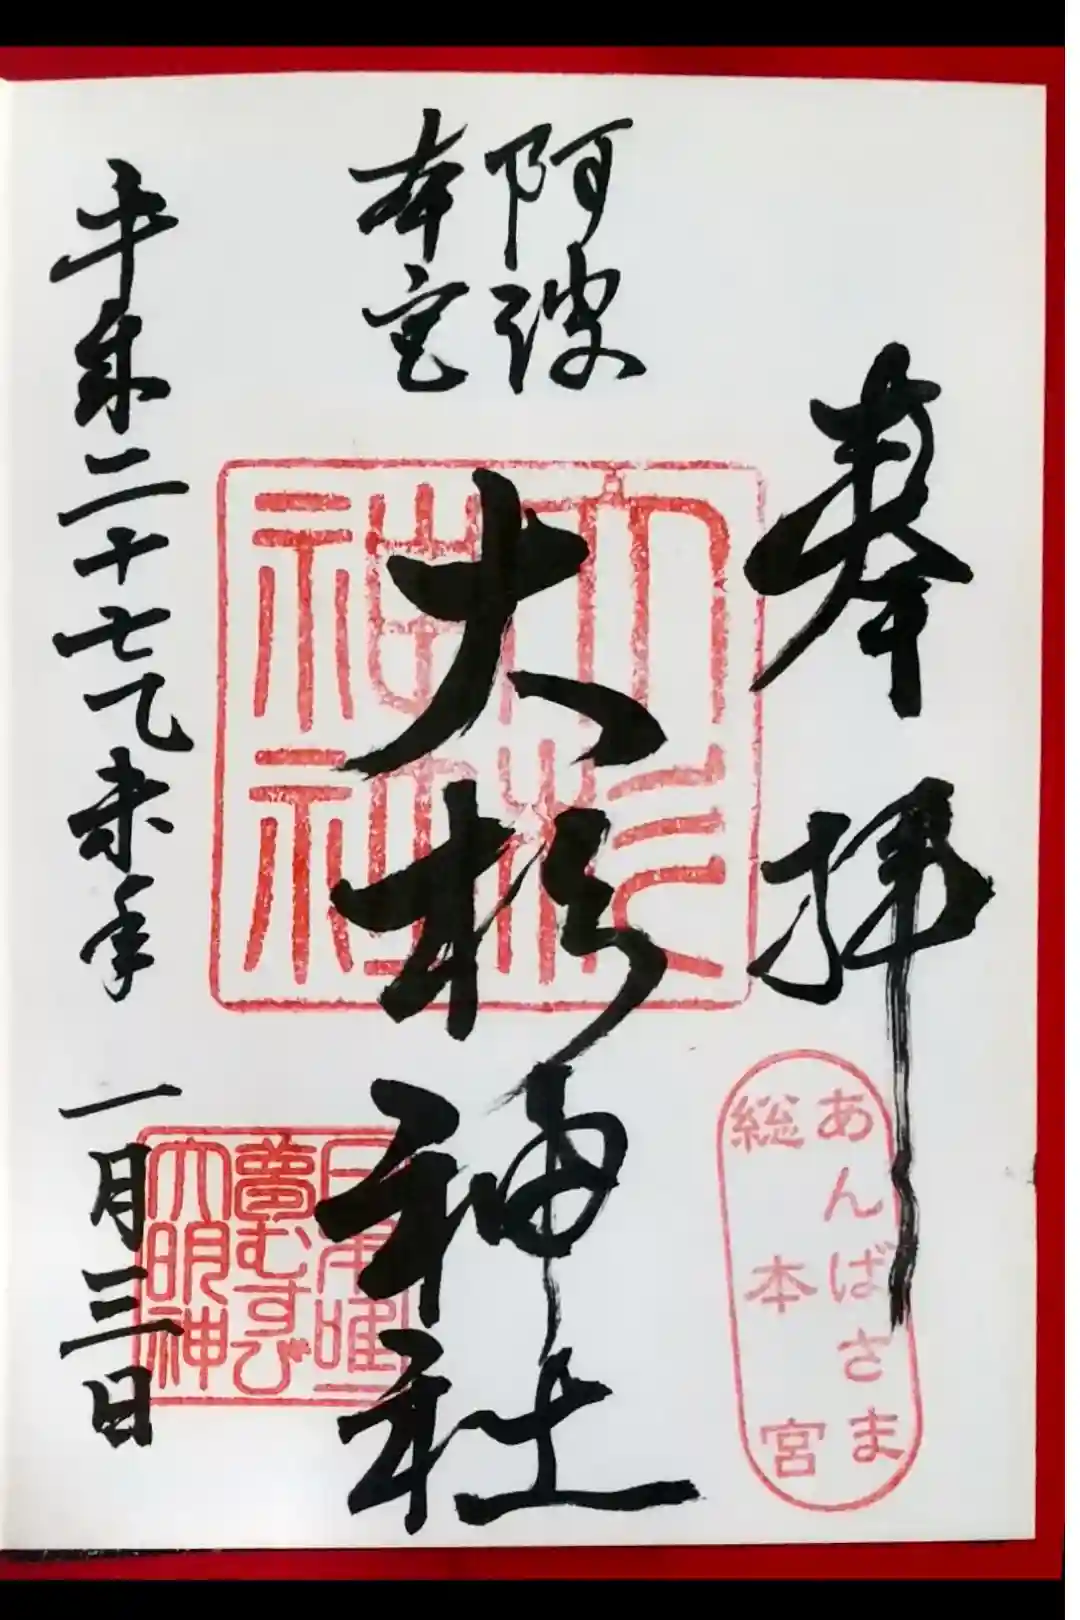 奉拝
あんばさま
総本宮
阿波
本宮
大杉神社
大杉
神社
日本唯一
夢むすび
大明神
平成二十七乙未年 一月三日